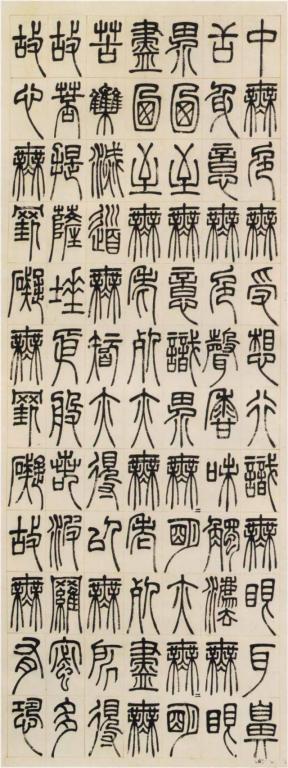 中無色無受想行識無眼耳鼻
舌身意無色聲香味觸法無眼
界乃至無意識界無〻明亦無〻明
盡乃至無老死亦無老死盡無
苦集滅道無智亦無得以無所得
故菩提薩埵依般若波羅蜜多
故心無罣礙無罣礙故無有恐